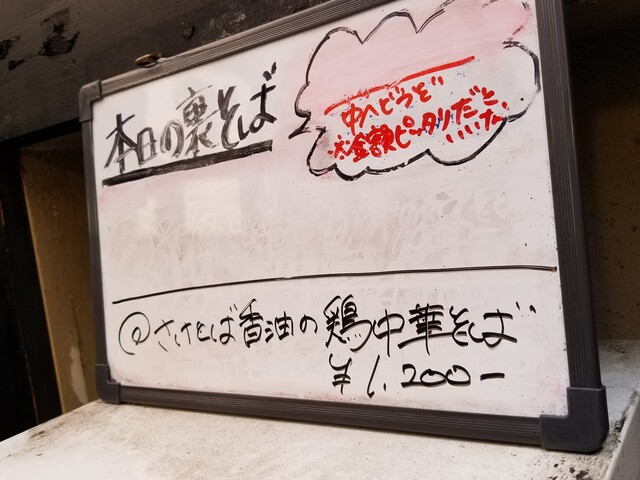 本日の裏そば
中へどうぞ
※金額ピッタリだと
いいな
@さけとば香油の鶏中華そば
¥1,200-